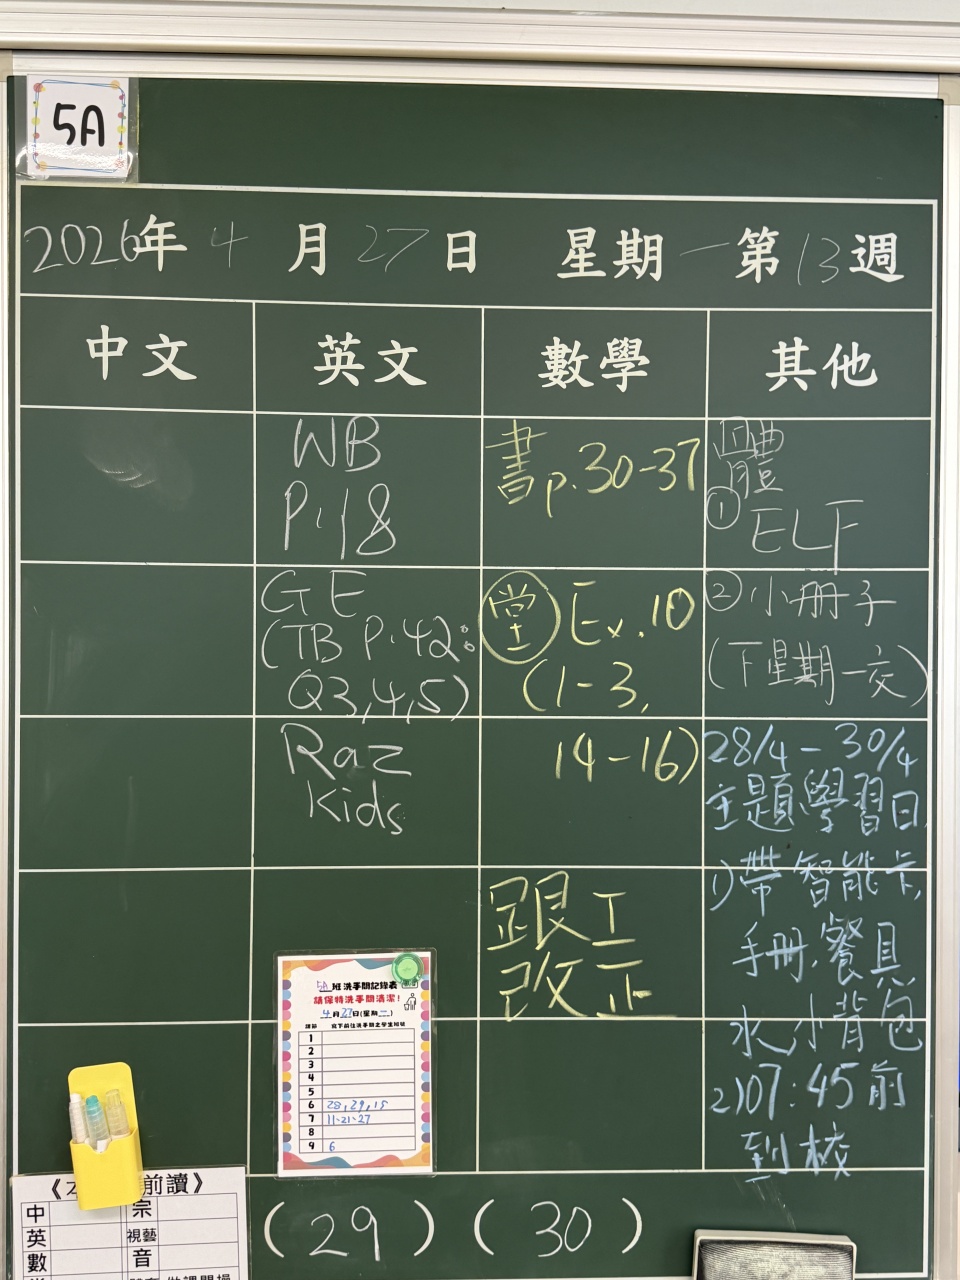 5A
2026年4月27日 星期一 第13週
中文 英文 數學 其他
WB
P.18
GE
(TB P.42:
Q3,4,5)
Raz
Kids
書p.30-37
堂 Ex.10
(1-3,
14-16)
跟工
改正
體
① ELF
② 小冊子
(下星期一交)
28/4-30/4
主題學習日
1)帶智能卡,
手冊,餐具,
水,小背包
2)07:45前
到校
5A班洗手間記錄表
請保持洗手間清潔!
4月27日(星期一)
課節 寫下前往洗手間之學生班號
1
2
3
4
5
6 28,29,15
7 11-21-27
8
9 6
前讀》
中 宗
英 視藝
數 音
(29) (30)